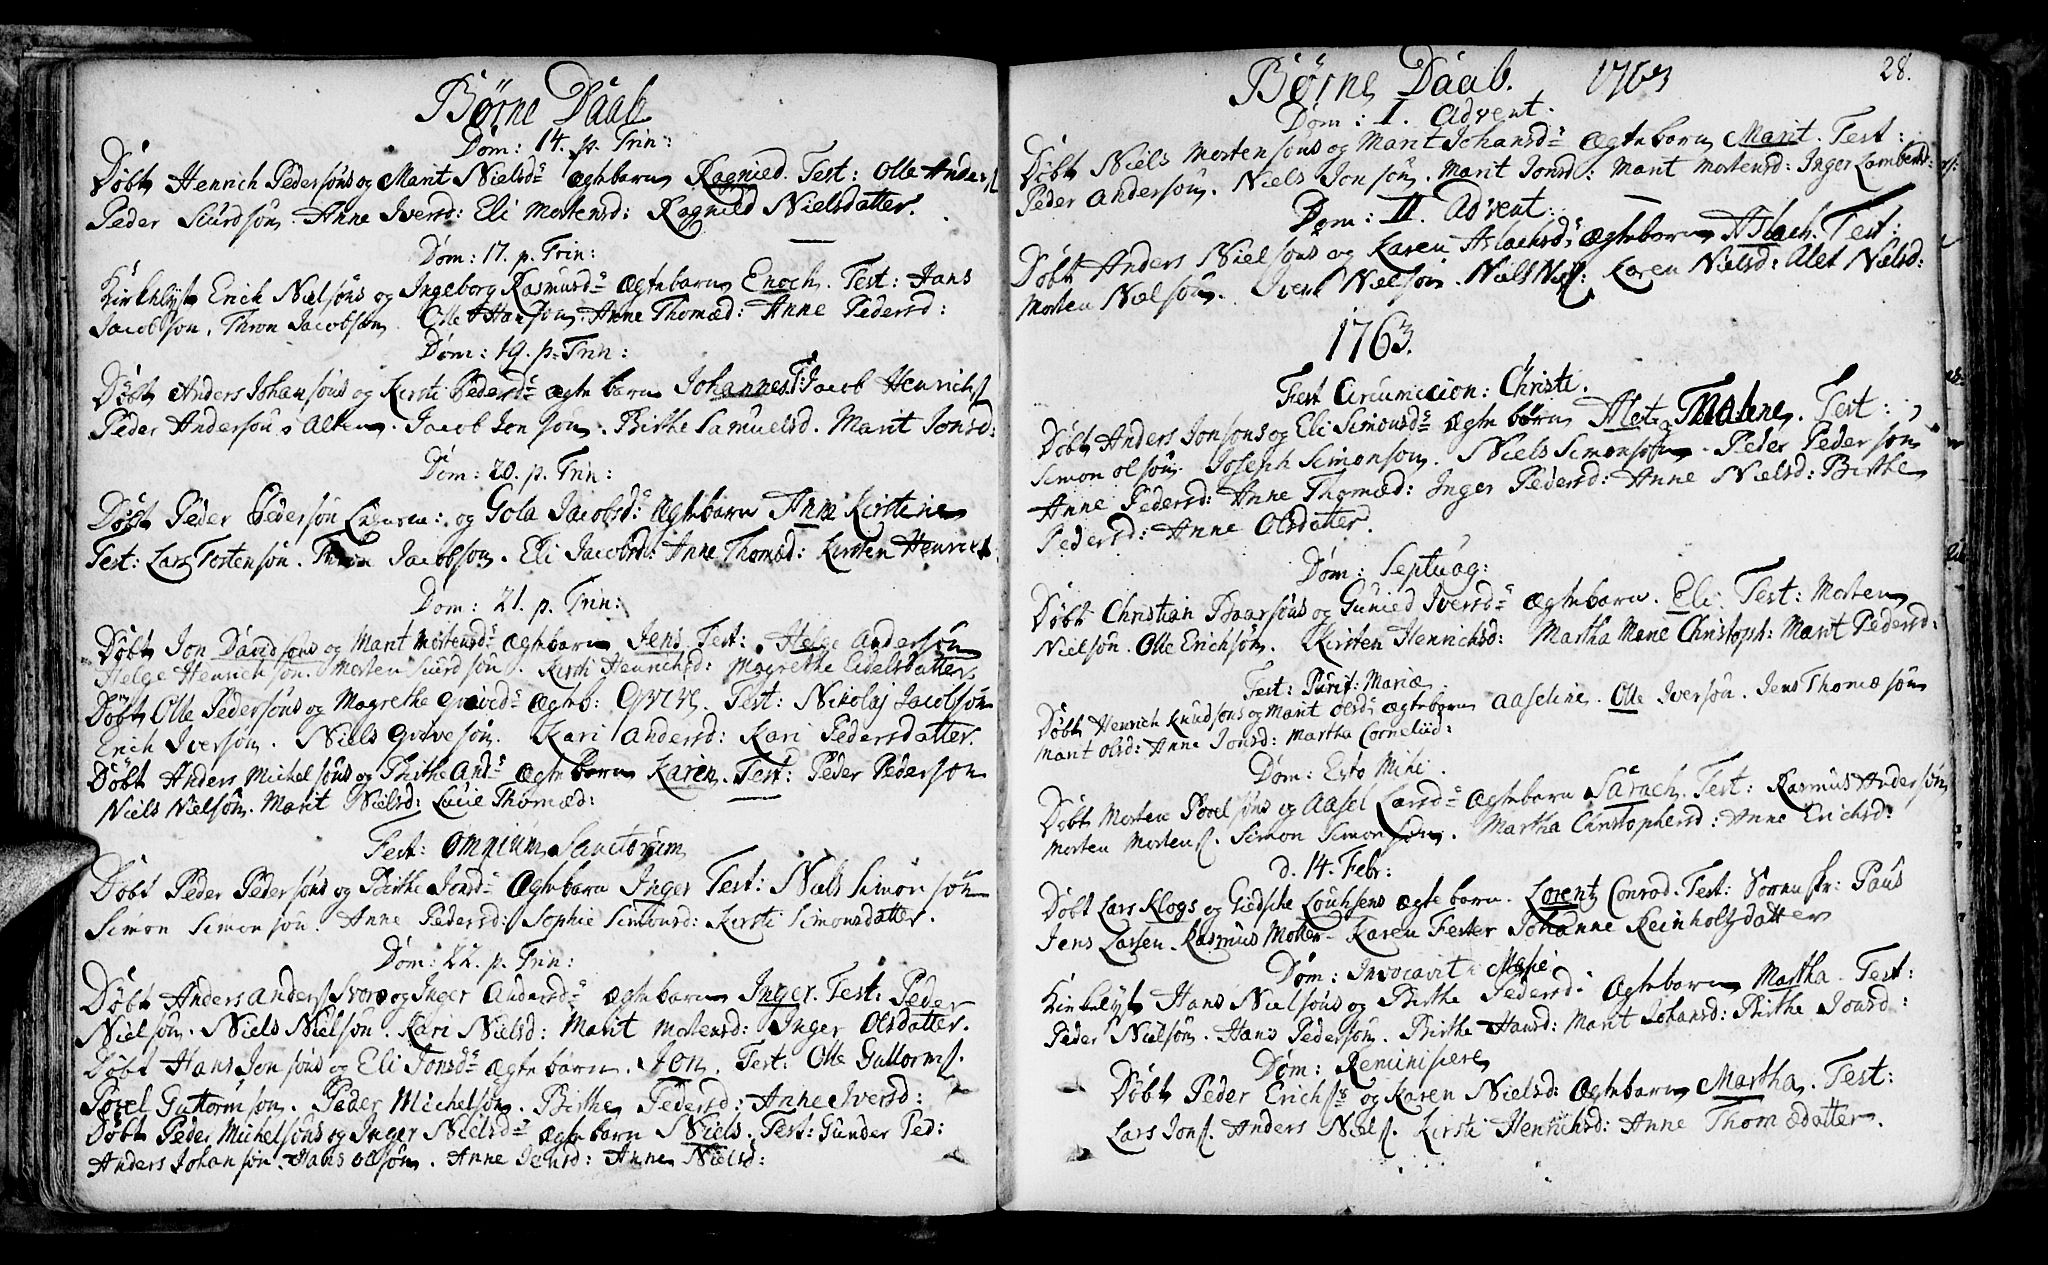 Børne Daab
Dom: 14. p. Trin:
Døbt Henrich Pedersøns og Marit Nielsd: Ægtebarn Ragnild. Test: Olle Anders:
Peder Siurdsøn. Anne Iversd: Eli Mortensd: Ragnild Nielsdatter.
Dom: 17. p. Trin:
Kirkelyst Erich Nielsøns og Ingeborg Rasmusd: Ægtebarn Enoch. Test: Hans
Jacobsøn. Thron Jacobsøn. Olle Hansøn. Anne Thomæd: Anne Pedersd:
Dom: 19. p. Trin:
Døbt Anders Johansøns og Kirsti Pedersd: Ægtebarn Johannes. T: Jacob Henrichs:
Peder Andersøn Alten. Jacob Jonsøn. Birthe Samuelsd. Marit Jonsd:
Dom: 20. p. Trin:
Døbt Peder Pedersøn og Gola Jacobsd: Ægtebarn Anne Kirstine
Test: Lars Tostensøn. Thron Jacobsøn. Eli Jacobsd: Anne Thomæd: Kirsten Henrichs
Dom: 21. p. Trin:
Døbt Jon Davidsøns og Marit Mortensd: Ægtebarn Jens. Test: Helge Andersøn
Helge Henrichsøn. Morten Siurdsøn. Kirsti Henrichsd: Magrethe Edelsdatter.
Døbt Olle Pedersøns og Magrethe Ægteb: Test: Nikolaj Jacobsøn
Erich Iversøn. Niels Grevesøn. Kari Andersd: Kari Pedersdatter.
Døbt Anders Michelsøns og Birthe And: Ægtebarn Karen. Test: Peder Pedersøn
Niels Nielsøn. Marit Nielsd: Lucie Thomæd:
Fest: Omnium Sanctorum
Døbt Peder Pedersøns og Birthe Jonsd: Ægtebarn Inger Test: Niels Simonsøn
Simon Simonsøn. Anne Pedersd: Sophie Simonsd: Kirsti Simonsdatter.
Dom: 22. p. Trin:
Døbt Anders Anders: og Inger Andersd: Ægtebarn Inger. Test: Peder
Nielsøn. Niels Nielsøn. Kari Nielsd: Marit Mortensd: Inger Olsdatter.
Døbt Hans Jonsøns og Eli Jonsd: Ægtebarn. Jon. Test: Olle Guttorms:
Povel Guttormsøn. Peder Michelsøn. Birthe Pedersd: Anne Iversd:
Døbt Peder Michelsøns og Inger Nielsd: Ægtebarn Niels. Test: Gunder Ped:
Anders Johansøn. Hans Olsøn. Anne Jonsd: Anne Nielsd:
Børne Daab. 1763
28.
Dom: I. Advent.
Døbt Niels Mortensøns og Marit Johansd: Ægtebarn Marit. Test:
Peder Andersøn. Niels Jonsøn. Marit Jonsd: Marit Mortensd: Inger Lambertsd:
Dom: II. Advent:
Døbt Anders Nielsøns og Karen Aslachsd: Ægtebarn Aslach. Test:
Morten Nielsøn. Iver Nielsøn. Niels Niels: Karen Nielsd: Alet Nielsd:
1763.
Fest Circumcision: Christi.
Døbt Anders Jonsøns og Eli Simonsd: Ægtebørn Alet og Malene. Test:
Simon Olsøn. Joseph Simonsøn. Niels Simonsøn. Peder Pedersøn
Anne Pedersd: Anne Thomæd: Inger Pedersd: Anne Nielsd: Birthe
Pedersd: Anne Olsdatter.
Dom: Septuag:
Døbt Christian Baarsøns og Gunild Iversd: Ægtebarn. Eli. Test: Morten
Nielsøn. Olle Erichsøn. Kirsten Henrichsd: Martha Marie Christoph: Marit Pedersd:
Fest: Purif: Mariæ
Døbt Henrich Knudsøns og Marit Olsd: Ægtebarn Aaseline. Olle Iversøn. Jens Thomæsøn
Marit Olsd: Anne Jonsd: Martha Corneliid:
Dom: Esto Mihi.
Døbt Morten Povelsøns og Aasel Larsd: Ægtebarn Sarach. Test: Rasmus Andersøn
Morten Mortens: Simon Simonsøn. Martha Christophersd: Anne Erichsd:
d. 14. Febr:
Døbt Lars Klogs og Giedsche Ægtebarn. Lorentz Conrad. Test: Paus
Jens Larsen. Rasmus Moller. Karen Fester Johanne Reinholtzdatter
Dom: Invocavit
Kirkelyst Hans Nielsøns og Birthe Marie Pedersd: Ægtebarn Martha. Test:
Peder Nielsøn. Hans Pedersøn. Birthe Hansd: Marit Johansd: Birthe Jonsd:
Dom: Reminiscere
Døbt Peder Erichs: og Karen Nielsd: Ægtebarn Martha. Test:
Lars Jons: Anders Niels: Kirsti Henrichsd: Anne Thomædatter.